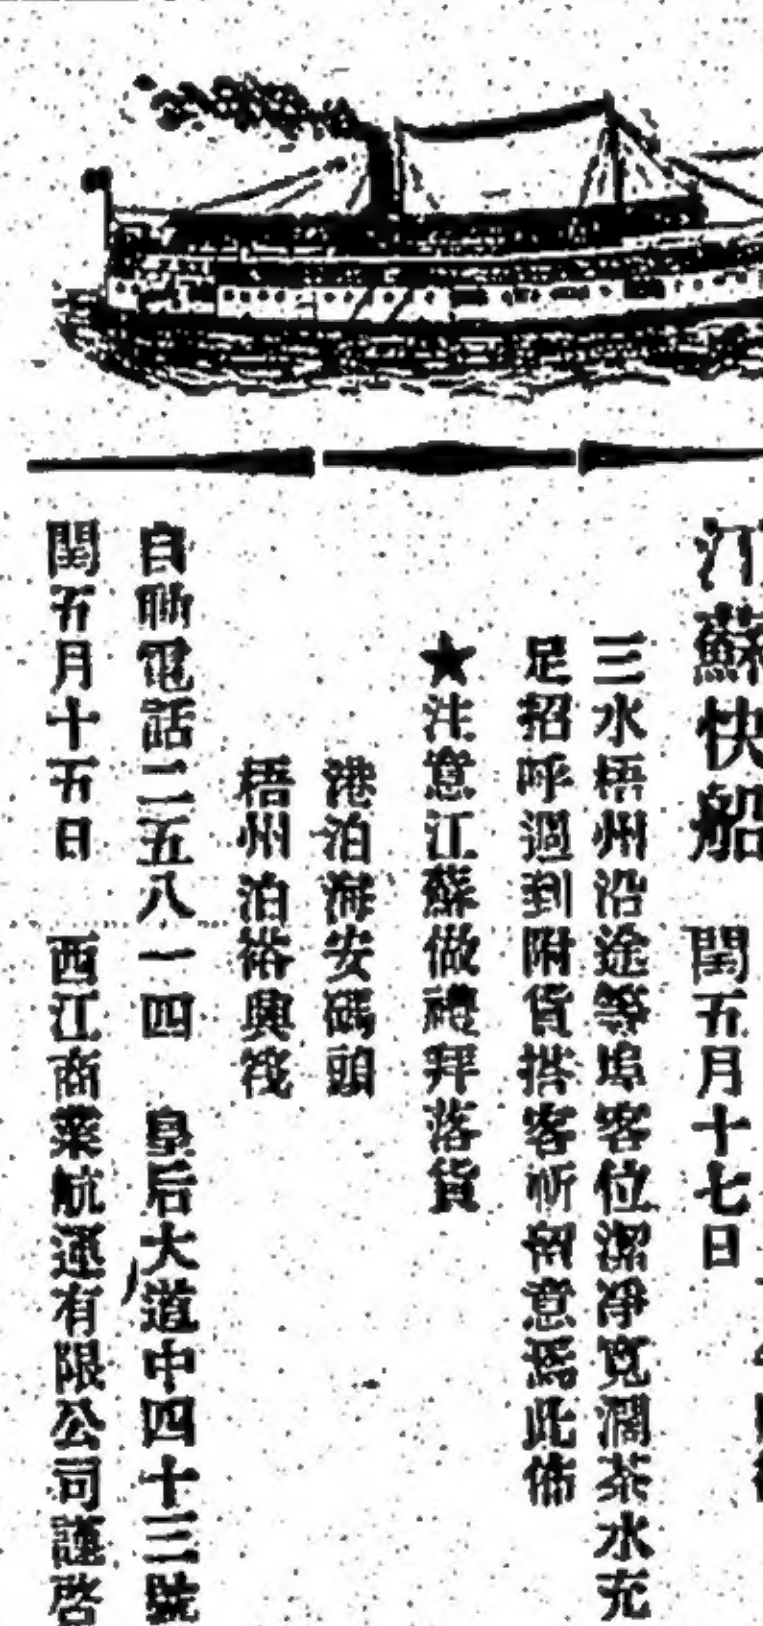 江蘇快船 閏五月十七日
三水梧州沿途等埠客位潔净寬濶茶水充
足招呼週到附貨搭客祈留意焉此佈
★注意江蘇做禮拜落貨
港泊海安碼頭
梧州泊裕興筏
自聯電話二五八一四 皇后大道中四十三號
閏五月十五日 西江商業航運有限公司謹啓